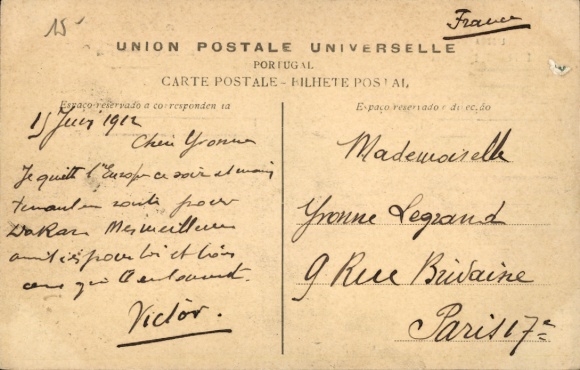 15
France
UNION POSTALE UNIVERSELLE
PORTUGAL
CARTE POSTALE - BILHETE POSTAL
Espaço reservado a correspondencia
Espaço reservado a direcção
15 Juin 1912
Chère Yvonne
Je quitte l'Europe ce soir et main
tenant en route pour
Dakar Meilleures
amitiés pour toi et tous
ceux qui t'entourent.
Victor.
Mademoiselle
Yvonne Legrand
9 Rue Bridaine
Paris 17e